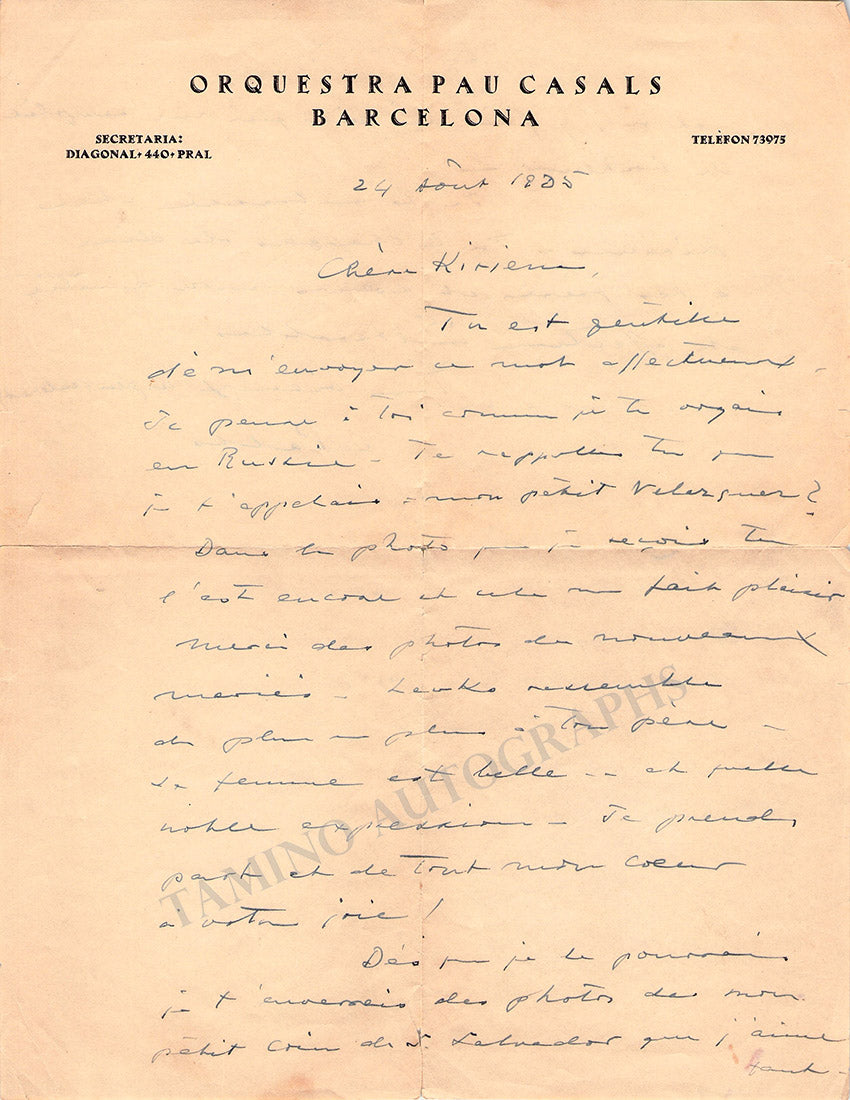 ORQUESTRA PAU CASALS
BARCELONA
SECRETARIA:
DIAGONAL, 440, PRAL
TELÈFON 73975
24 Aôut 1935
Chère Kiriena,
Tu est gentille
de m'envoyer ce mot affectueux.
Je pense à Toi comme je te voyais
en Russie – Te rappelles tu que
je t'appelais – mon petit Velazquez?
Dans la photo que je reçois tu
l'est encore et cela me fait plaisir
Merci des photos des nouveaux
mariés – Levko ressemble
de plus en plus à ton père –
Sa femme est belle -- et quelle
noble expression – Je prends
part et de Tout mon coeur
à votre joie!
Dès que je le pourrais
je t'enverrais des photos de mon
pétit coin de S. Salvador que j'aime
tant –
TAMINO AUTOGRAPHS